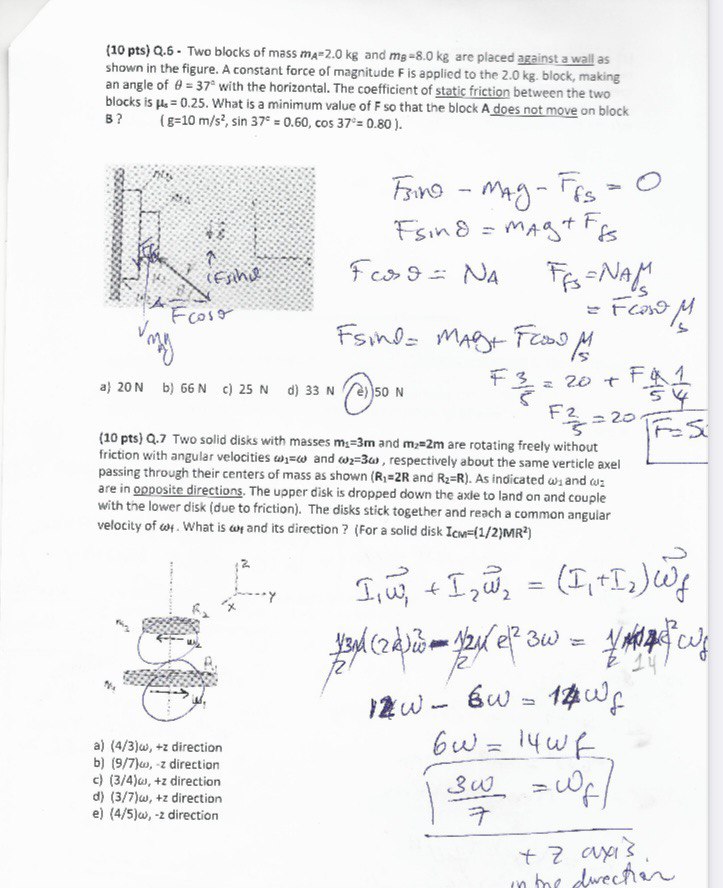 (10 pts) Q.6 - Two blocks of mass mA=2.0 kg and mB=8.0 kg are placed against a wall as
shown in the figure. A constant force of magnitude F is applied to the 2.0 kg. block, making
an angle of θ = 37° with the horizontal. The coefficient of static friction between the two
blocks is μs = 0.25. What is a minimum value of F so that the block A does not move on block
B ? ( g=10 m/s², sin 37° = 0.60, cos 37°= 0.80 ).
Fsinθ - mAg - Ffs = 0
Fsinθ = mAg + Ffs
Fcosθ = NA Ffs = NAμs
= Fcosθ μs
Fsinθ
Fcosθ
mAg
Fsinθ = mAg + Fcosθ μs
F 3/5 = 20 + F 4/5 1/4
F 2/5 = 20
F=50
a) 20 N b) 66 N c) 25 N d) 33 N e) 50 N
(10 pts) Q.7 Two solid disks with masses m₁=3m and m₂=2m are rotating freely without
friction with angular velocities ω₁=ω and ω₂=3ω , respectively about the same verticle axel
passing through their centers of mass as shown (R₁=2R and R₂=R). As indicated ω₁ and ω₂
are in opposite directions. The upper disk is dropped down the axle to land on and couple
with the lower disk (due to friction). The disks stick together and reach a common angular
velocity of ωf . What is ωf and its direction ? (For a solid disk ICM=(1/2)MR²)
z
y
x
m₂ R₂
ω₂
m₁ R₁
ω₁
I₁ω₁ + I₂ω₂ = (I₁+I₂)ωf
12ω - 6ω = 14ωf
6ω = 14ωf
3ω/7 = ωf
+ z axis
in the direction
a) (4/3)ω, +z direction
b) (9/7)ω, -z direction
c) (3/4)ω, +z direction
d) (3/7)ω, +z direction
e) (4/5)ω, -z direction